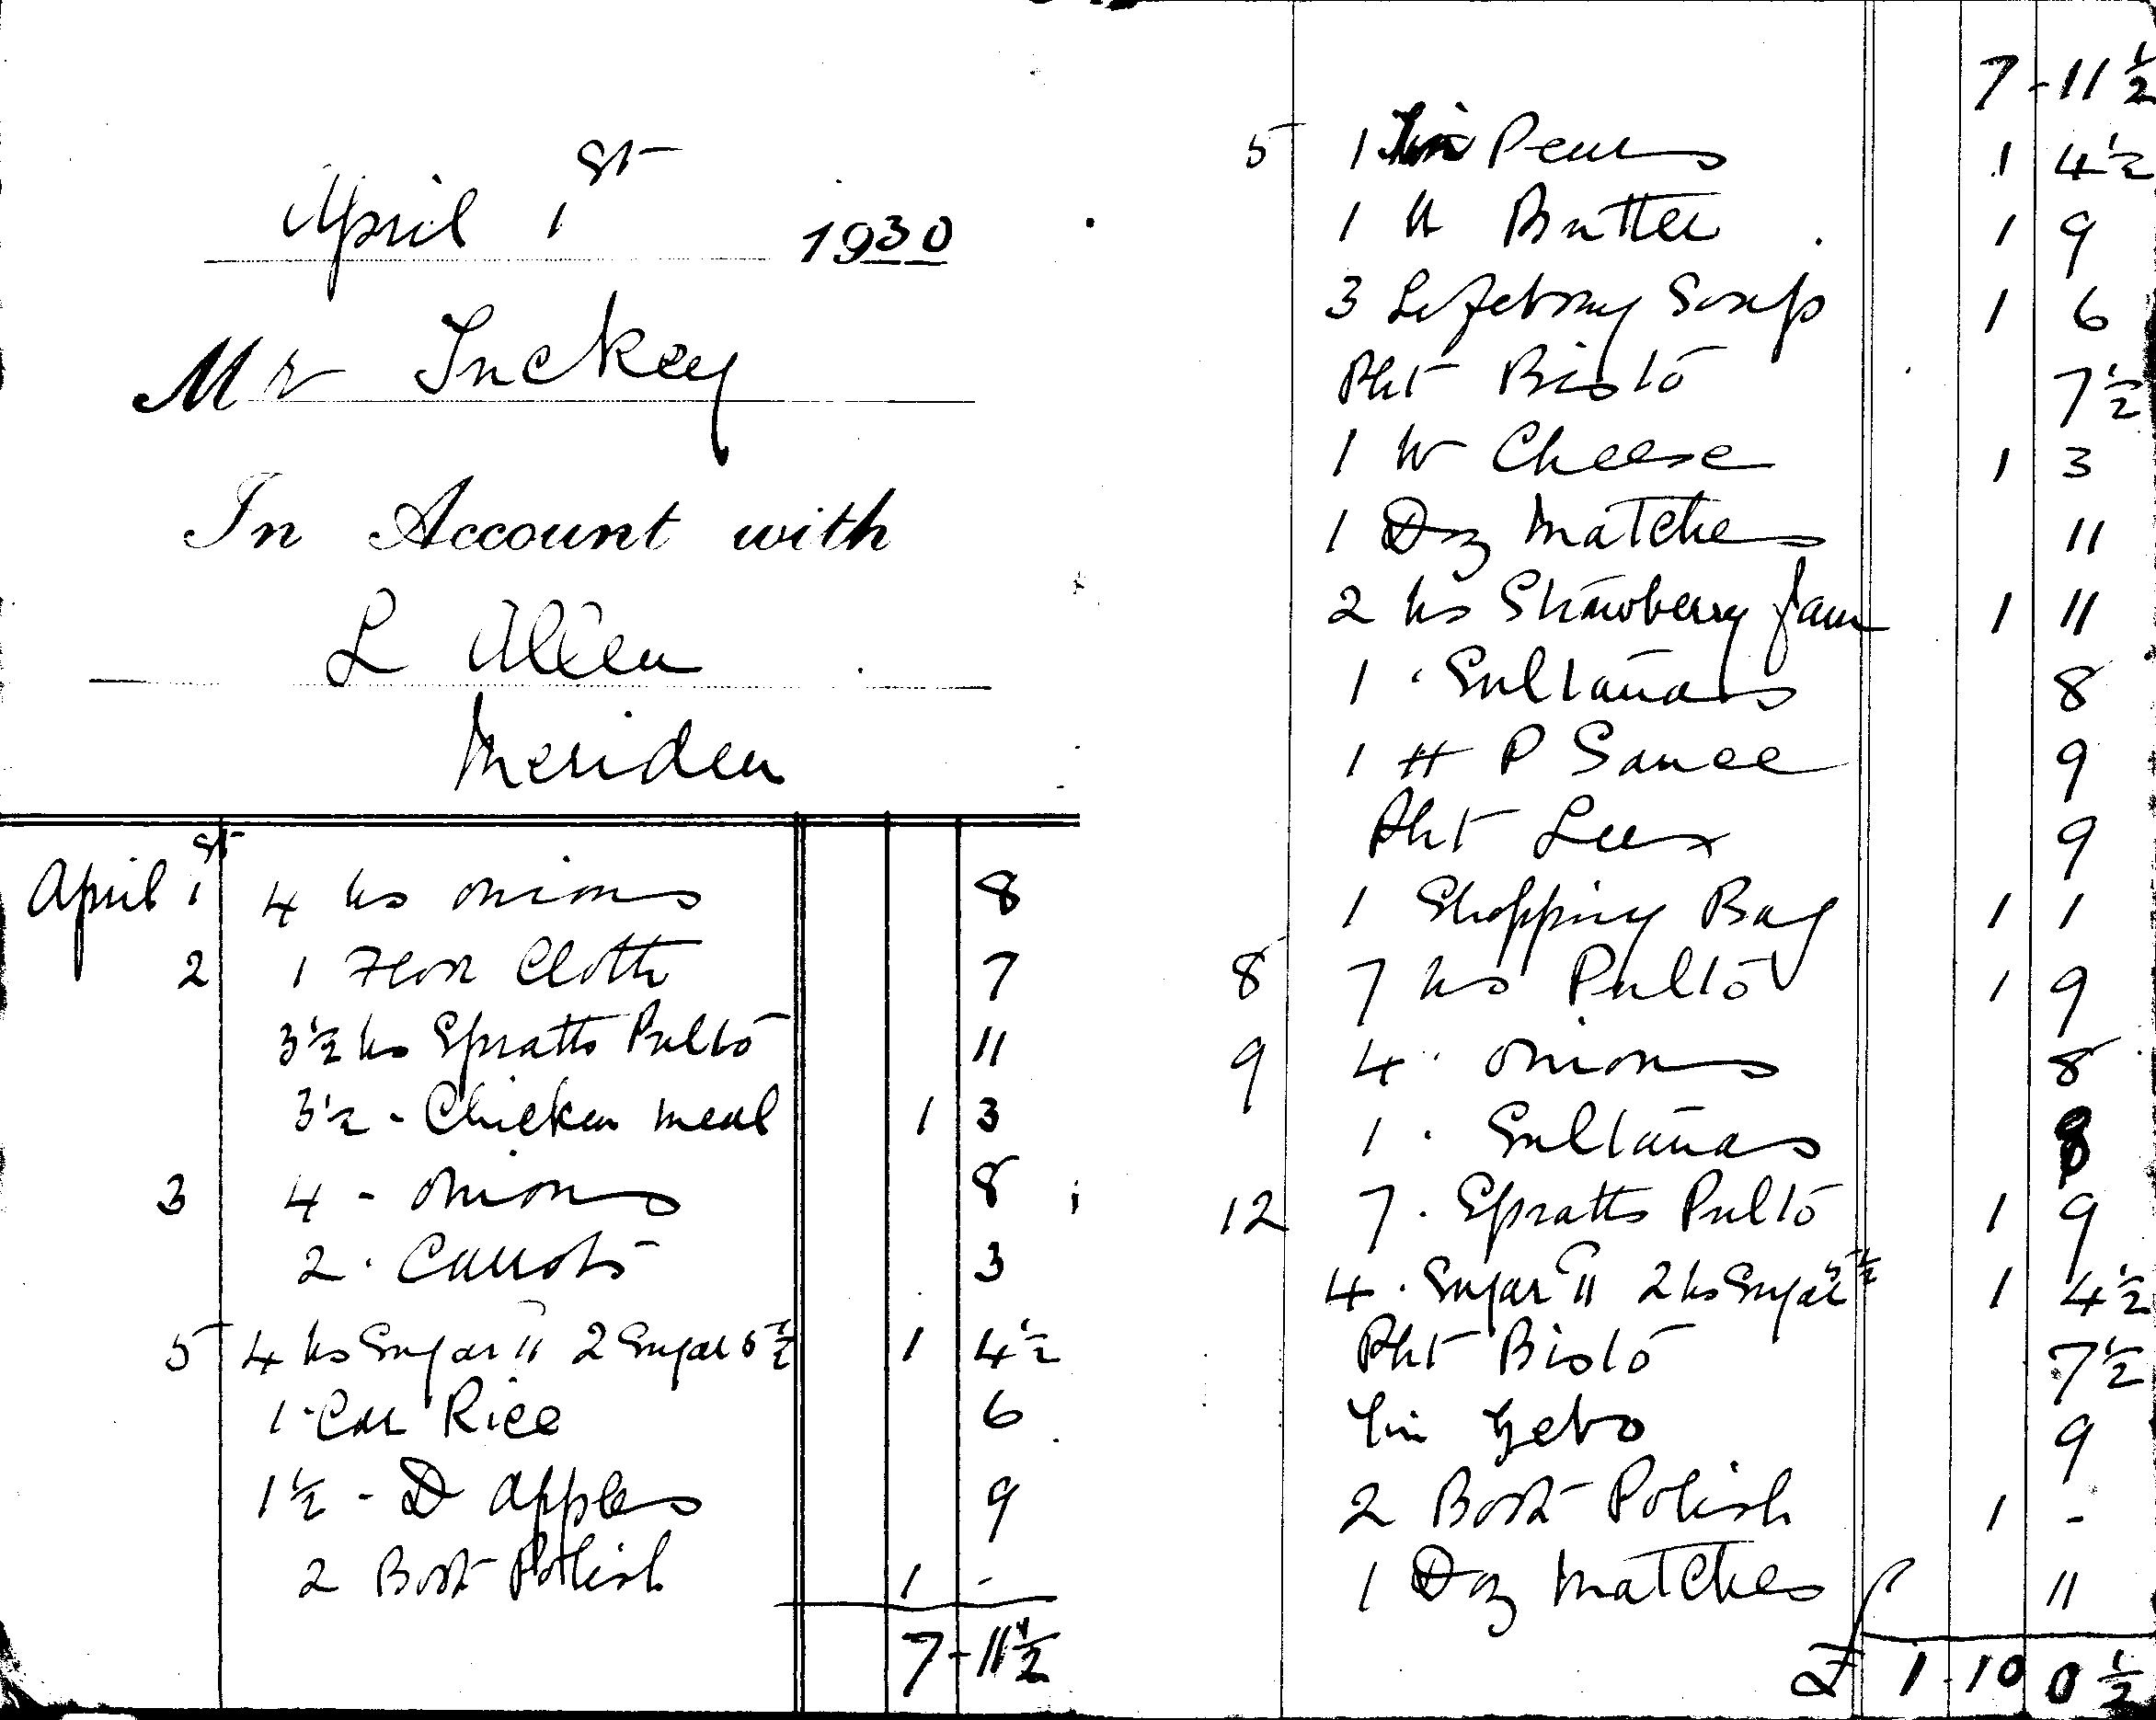 April 1st 1930
Mr Tuckey
In Account with
L Allen
Meriden
April 1st 4 lbs onions 8
2 1 Floor Cloth 7
3½ lbs Spratts Pulto 11
3½ - Chicken meal 1 3
3 4 - onions 8
2 . Carrots 3
5 4 lbs Sugar 11 2 Sugar 5½ 1 4½
1 . Car Rice 6
1½ - D apples 9
2 Boot Polish 1 -
7-11½
7-11½
5 1 Tin Pears 1 4½
1 lb Butter 1 9
3 Lifebuoy Soap 1 6
Pkt Bisto 7½
1 lb Cheese 1 3
1 Doz Matches 11
2 lbs Strawberry Jam 1 11
1 . Sultanas 8
1 H P Sauce 9
Pkt Lux 9
1 Shopping Bag 1 1
8 7 lbs Pulto 1 9
9 4 . onions 8
1 . Sultanas 8
12 7 . Spratts Pulto 1 9
4 . Sugar 11 2 lbs Sugar 5½ 1 4½
Pkt Bisto 7½
Tin 9
2 Boot Polish 1 -
1 Doz Matches 11
£ 1-10 0½